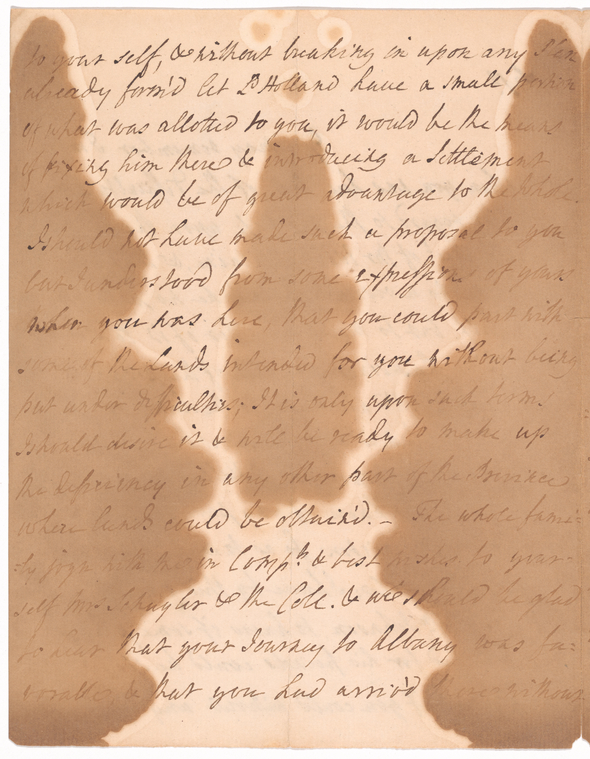 to your self, & without breaking in upon any
already form'd let Ld Holland have a small portion
of what was allotted to you, it would be the means
of fixing him there & introducing a Settlement
which would be of great advantage to the whole.
I should not have made such a proposal to you
but I understood from some expressions of yours
when you was here, that you could part with
some of the Lands intended for you without being
put under difficulties; It is only upon such terms
I should desire it & will be ready to make up
the deficiency in any other part of the Province
where lands could be obtain'd. – The whole fami=
ly joyn with me in Compts & best wishes to your=
self Mrs Schuyler & the Colo. & we should be glad
to hear that your Journey to Albany was fa=
vorable, & that you had arriv'd there without